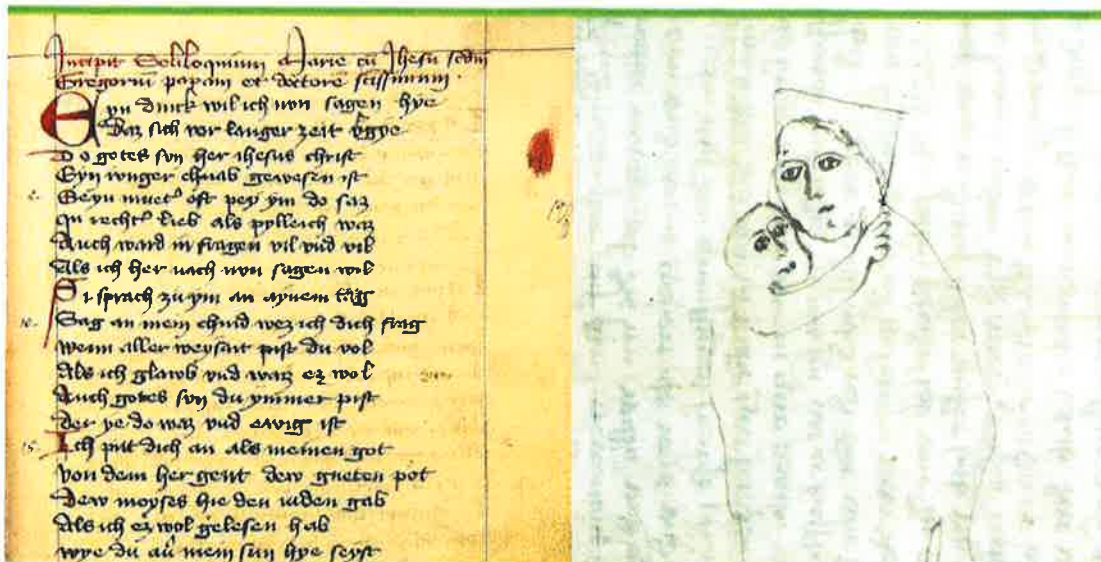 Incipit Soliloquium Marie cu Jhesu scdm
Gregoriu papam et doctore scissimum
Eyn dinck wil ich nvn sagen hye
Daz sich vor langer zeit vgye
Do gotes svn her ihesus christ
Eyn iunger chnab gewesen ist
Seyn muet oft pey ym do saz
In recht lieb als pylleich waz
Auch ward in fragen vil vnd vil
Als ich her nach nvn sagen wil
Si sprach zu ym an aynem tag
10. Sag an mein chind wez ich dich frag
Wenn aller weyshait pist du vol
Als ich glawb vnd waiz ez wol
Auch gotes svn du ymmer pist
Der ye do waz vnd ewig ist
15. Ich pitt dich an als meinen got
Von dem her gent dew gueten pot
Dew moyses hie den iuden gab
Als ich ez wol gelesen hab
Wye du au mein sun hye seyst